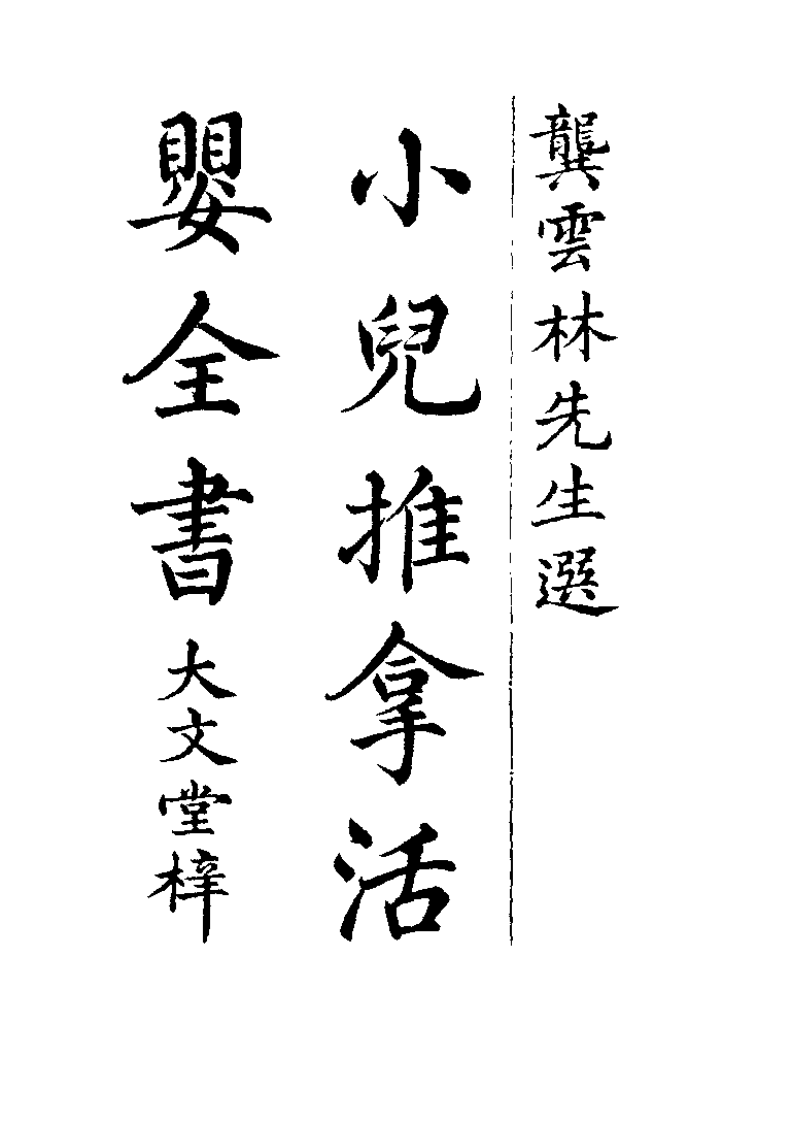 龔雲林先生選
小兒推拿活
嬰全書 大文堂梓